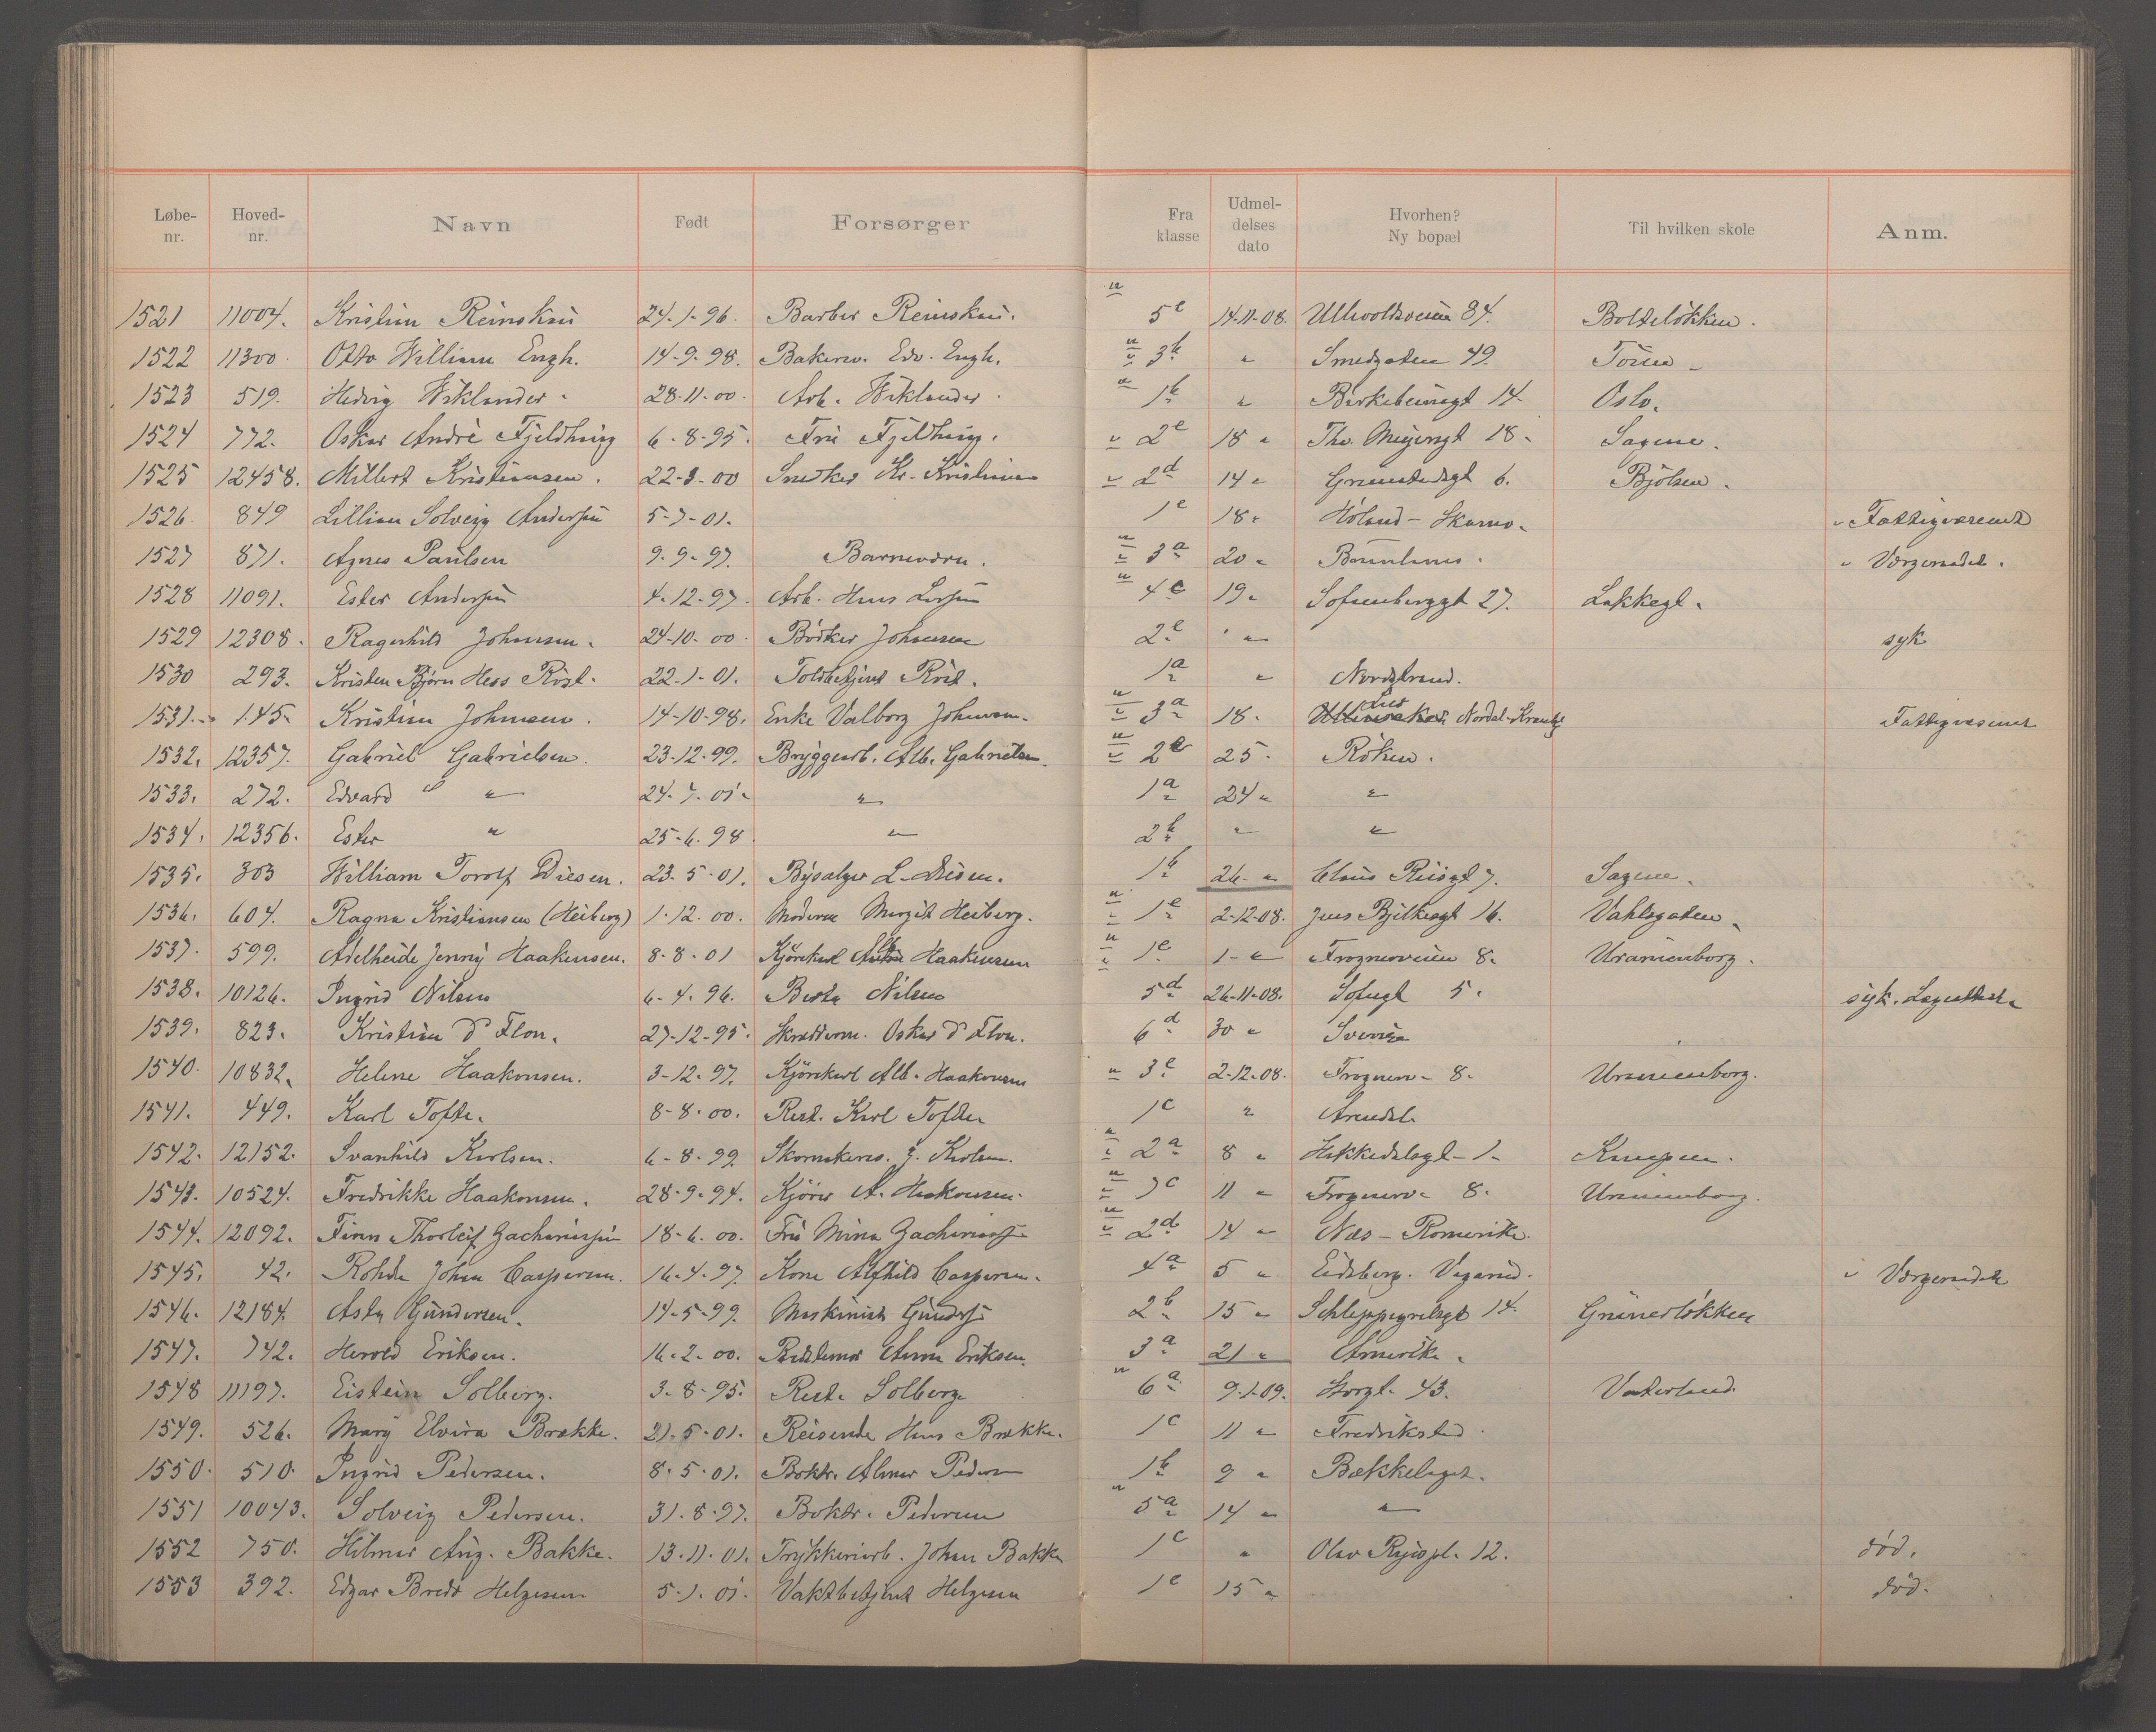 Løbe-nr. Hoved-nr. Navn Født Forsørger Fra klasse Udmel-delses dato Hvorhen? Ny bopæl Til hvilken skole Anm.
1521 11004. Kristian 24-1-96. Barber 5 e 14-11-08. Ullevoldsveien 84. Bolteløkken.
1522 11300. Otto William Engh. 14-9-98. Edv. Engh. 3 b " Smedgaten 49. Tøien
1523 519. Hedvig Wiklander. 28-11-00. Arb. Wiklander. 1 b " Birkebeinergt 14. Oslo.
1524 772. Oskar André 6-8-95. Fru 2 e 18 " Th. Meyersgt 18. Sagene.
1525 12458. Kristiansen. 22-3-00 Snedker Kr. Kristiansen 2 d 14 " 6. Bjølsen.
1526. 849 Lillian Solveig Andersen 5-7-01. 1 e 18 " Høland - Fattigvæsenet
1527 871. Agnes Paulsen 9-9-97. Barnevern. 3 a 20 " Værgeraadet.
1528 11091. Ester Andersen 4-12-97. Arb. Hans 4 e 19 " Sofienberggt 27. Lakkegt.
1529 12308. Ragnhild Johansen. 24-10-00. Bødker Johansen 2 e " syk
1530 293. Kristen Bjørn Hess Röst. 22-1-01. Toldbetjent Röst. 1 a " Nordstrand.
1531. 145. Kristian Johnsen. 14-10-98. Enke Valborg Johnsen. 3 a 18. Nordal Fattigvæsenet
1532. 12357. Gabriel Gabrielsen. 23-12-99. Bryggearb. Alb. Gabrielsen. 2 e 25. Röken.
1533. 272. Edvard " " 24-7-01. " 1 a 24 " "
1534. 12356. Ester " 25-6-98. " 2 b " "
1535. 303 William Torolf Diesen. 23-5-01. Bysælger L. Diesen. 1 b 26 " Claus Riisgt 7. Sagene.
1536. 604. Ragna Kristiansen (Heiberg) 1-12-00. Moderen Margit Heiberg. 1 e 2-12-08. Jens Bjelkesgt 16. Vahlsgaten.
1537. 599. Adelheide Jenny Haakensen. 8-8-01 Kjørekarl Haakensen 1 e 1 " Frognerveien 8. Uranienborg.
1538. 10126. Ingrid Nilsen 6-4-96. Nilsen 5 d 26-11-08. Sofiegt 5. syk. Lægeattest.
1539. 823. Kristian d'Flon. 27-12-95. Skrædderm. Oskar d'Flon. 6 d 30 " Sverige
1540. 10832. Helene Haakonsen. 3-12-97. Kjørekarl Alb. Haakonsen 3 e 2-12-08. Frognerv. 8. Uranienborg.
1541. 449. Karl Tofte. 8-8-00. Rest. Karl Tofte 1 c " Arendal.
1542. 12152. Svanhild Karlsen. 6-8-99. Skomakerm. J. Karlsen. 2 a 8 " Hakkedalsgt 1. Kampen.
1543. 10524. Fredrikke Haakonsen. 28-9-94. Kjører A. Haakonsen. 7 c 11 " Frognerv. 8. Uranienborg.
1544. 12092. Finn Thorleif Zachariassen 18-6-00. Fru Mina Zachariassen 2 d 14 " Næs - Romerike.
1545. 42. Rohde Johan Caspersen. 16-4-97. Kone Alfhild Caspersen. 4 a 5 " Eidsberg. Værgeraadet
1546. 12184. Asta Gundersen. 14-5-99. Maskinist Gundersen 2 b 15 " Schleppegrelsgt 14. Grünerløkken
1547. 742. Harold Eriksen. 16-2-00. Anna Eriksen. 3 a 21 " Amerika.
1548 11197. Eistein Solberg. 3-8-95. Rest. Solberg 6 a 9-1-09. Storgt. 43. Vaterland.
1549. 526. Mary Elvira Brække. 21-5-01. Reisende Hans Brække. 1 c 11 " Fredrikstad.
1550. 510. Ingrid Pedersen. 8-5-01. Boktr. Pedersen 1 b 9 " Bækkelaget.
1551 10043. Solveig Pedersen. 31-8-97. Boktr. Pedersen 5 a 14 " "
1552 750. Hilmar Aug. Bakke. 13-11-01. Trykkeriarb. Johan Bakke 1 c " Olav Ryespl. 12. død.
1553 392. Edgar Helgesen 5-1-01. Vaktbetjent Helgesen 1 e 15 " død.